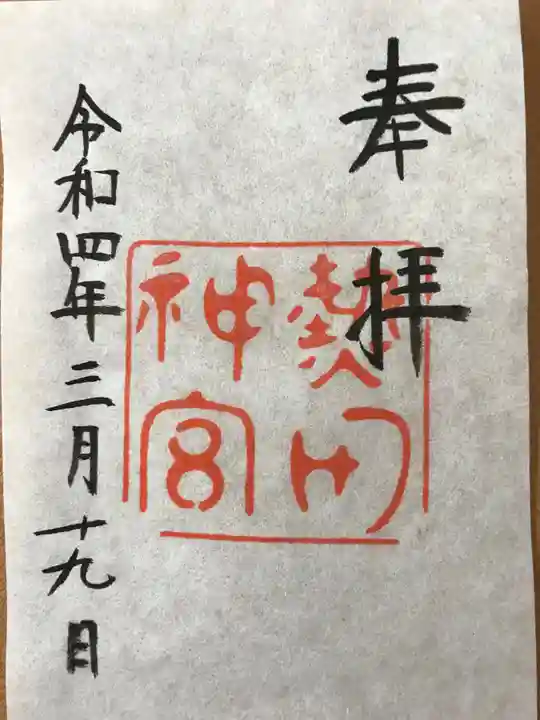 奉拝
熱田
神宮
令和四年三月十九日